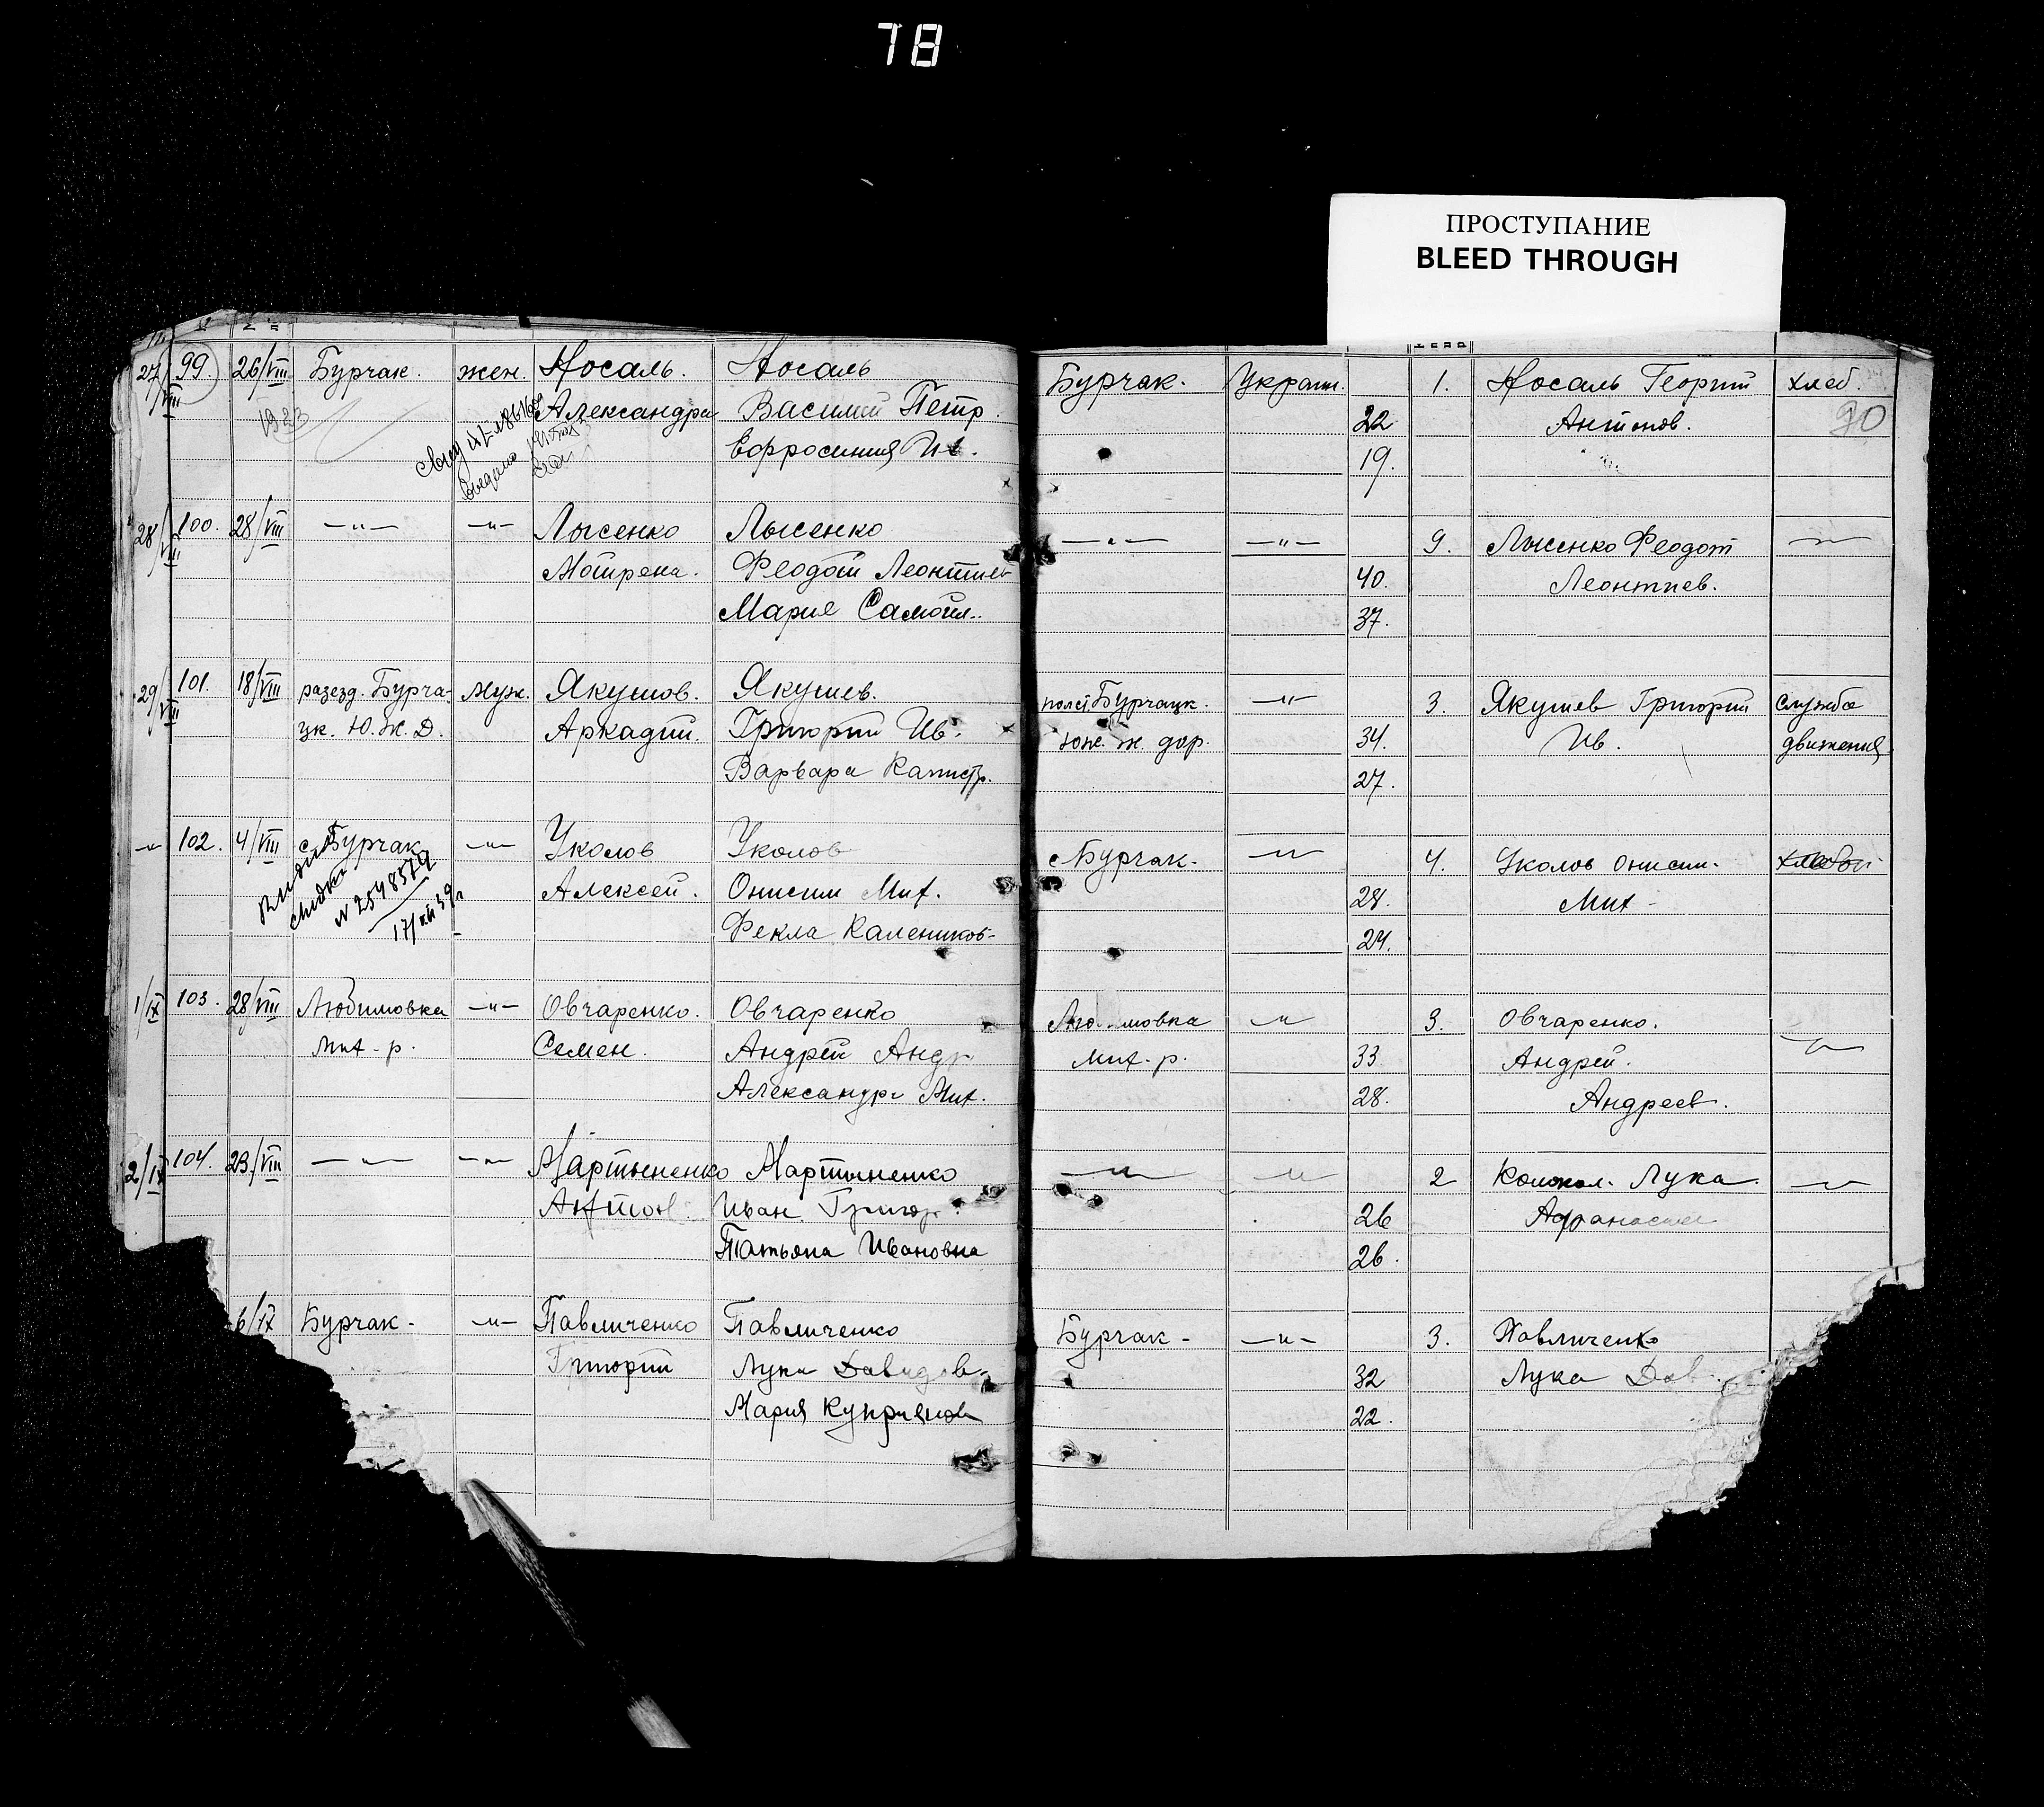 78
ПРОСТУПАНИЕ
BLEED THROUGH
27/VIII 99. 26/VIII Бурчак. жен. Носаль. Носаль Бурчак. Украин. 1. Носаль Георгий хлеб.
1923 Александра Василий Петр. 22 Антонов. 90
Ефросиния Ив. 19.
28/VIII 100. 28/VIII —"— —"— Лысенко Лысенко —"— —"— 9. Лысенко Феодот —"—
Мотрена. Феодот Леонтиев 40. Леонтиев.
Марие Самойл. 37.
29/VIII 101. 18/VIII разезд. Бурча- муж. Якушов. Якушев. Бурчацк. —"— 3. Якушев Григорий служба
цк. Ю.Ж.Д. Аркадий. Григорий Ив. юж. ж. дор. 34. Ив. движения
Варвара Капистр. 27.
—"— 102. 4/VIII с. Бурчак —"— Уколов Уколов с. Бурчак. —"— 4. Уколов Онисим.
N 2548579 Алексей. Онисим Мих. 28. Мих-
17/XII 39 г Фекла Калеников- 24.
1/IX 103. 28/VIII Любимовка —"— Овчаренко. Овчаренко Лю..мовка —"— 3. Овчаренко. —"—
Мих-р. Семен. Андрей Андр Мих-р. 33. Андрей.
Александра Мих. 28. Андреев.
2/IX 104. 23/VIII —"— —"— Мартыненко Мартыненко —"— —"— 2 Лука. —"—
Антон Иван. Григор. 26
Татьяна Ивановна 26.
6/IX Бурчак- —"— Павличенко Павличенко Бурчак- —"— 3. Павличенко
Григорий Лука Давидов- 32 Лука Дав
Мария Куприянов 22.